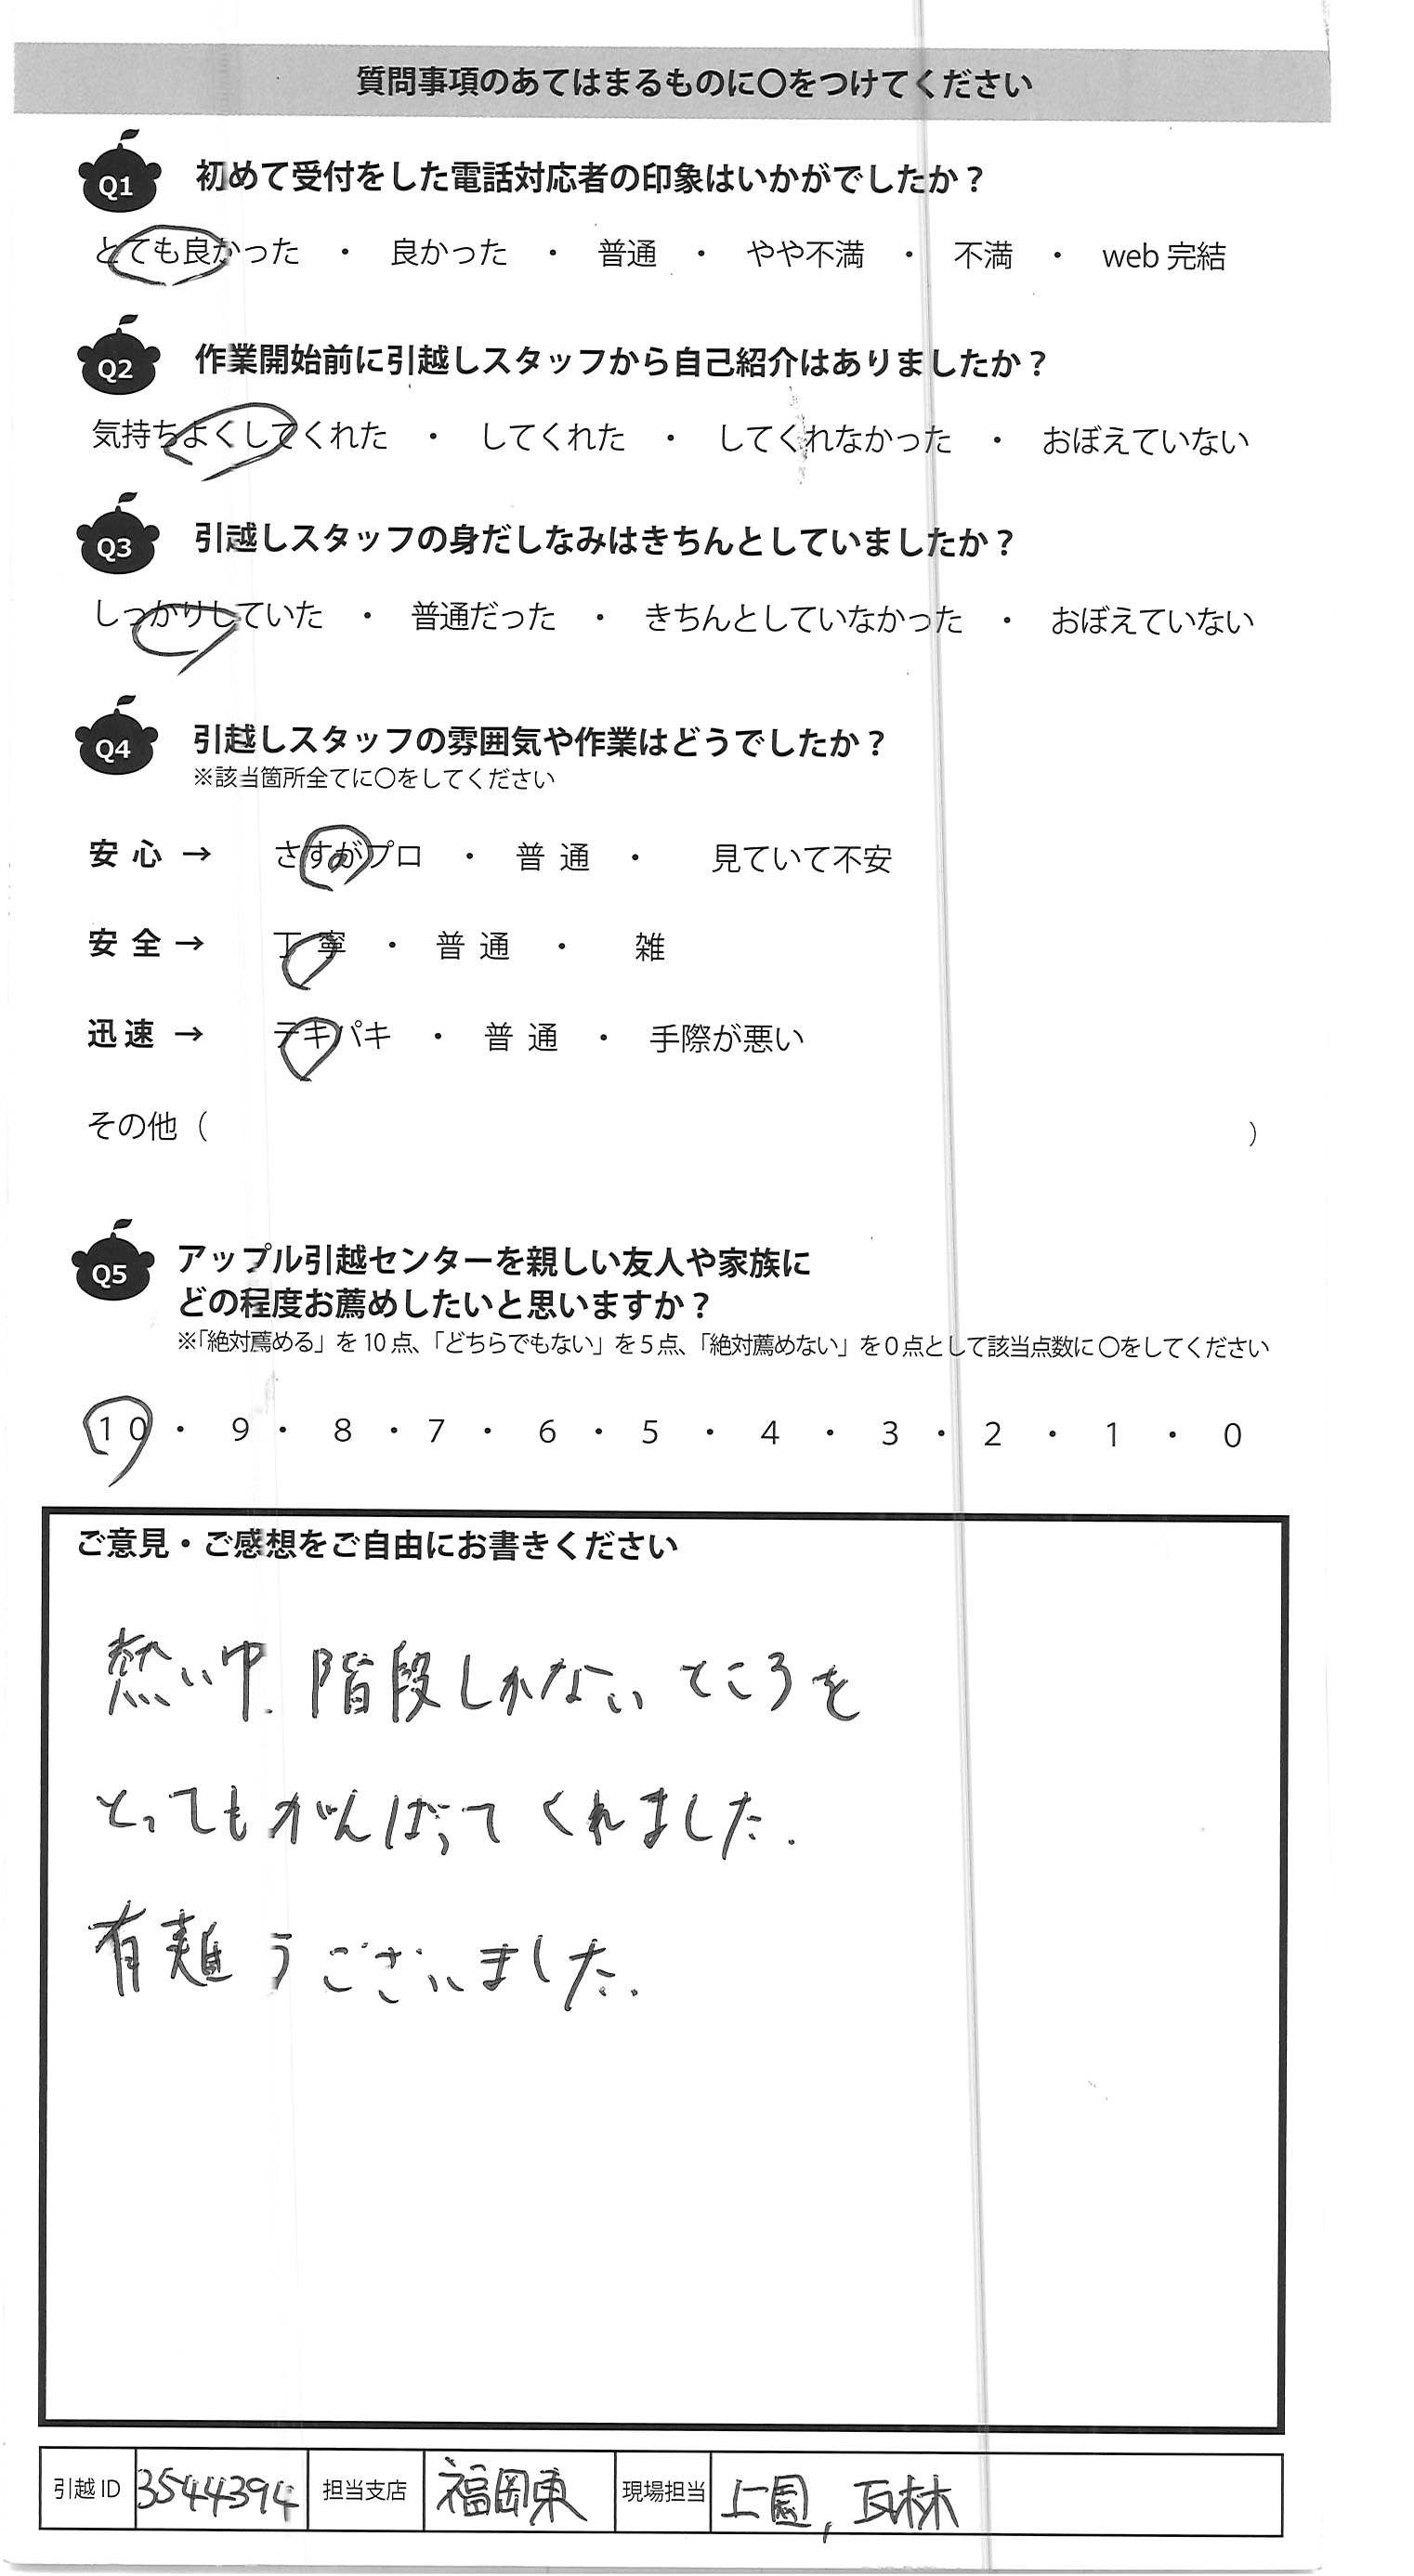 質問事項のあてはまるものに〇をつけてください
Q1 初めて受付をした電話対応者の印象はいかがでしたか？
とても良かった ・ 良かった ・ 普通 ・ やや不満 ・ 不満 ・ web 完結
Q2 作業開始前に引越しスタッフから自己紹介はありましたか？
気持ちよくしてくれた ・ してくれた ・ してくれなかった ・ おぼえていない
Q3 引越しスタッフの身だしなみはきちんとしていましたか？
しっかりしていた ・ 普通だった ・ きちんとしていなかった ・ おぼえていない
Q4 引越しスタッフの雰囲気や作業はどうでしたか？
※該当箇所全てに〇をしてください
安心 → さすがプロ ・ 普通 ・ 見ていて不安
安全 → 丁寧 ・ 普通 ・ 雑
迅速 → テキパキ ・ 普通 ・ 手際が悪い
その他（ ）
Q5 アップル引越センターを親しい友人や家族に
どの程度お薦めしたいと思いますか？
※「絶対薦める」を10点、「どちらでもない」を5点、「絶対薦めない」を0点として該当点数に〇をしてください
10 ・ 9 ・ 8 ・ 7 ・ 6 ・ 5 ・ 4 ・ 3 ・ 2 ・ 1 ・ 0
ご意見・ご感想をご自由にお書きください
熱い中. 階段しかないところを
とってもがんばってくれました.
有難うございました.
引越ID 3544394 担当支店 福岡東 現場担当 上園, 瓦林